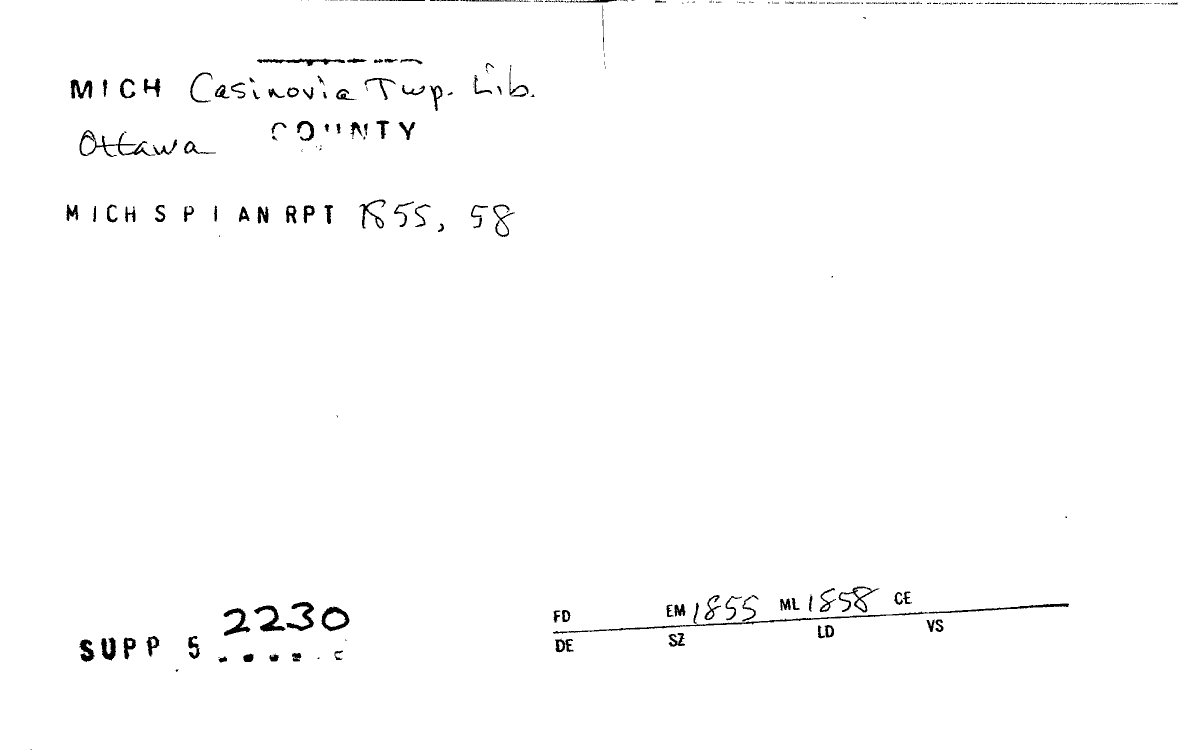 MICH Casinovia Twp. Lib.
Ottawa COUNTY
MICH S P I AN RPT 1855, 58
2230
SUPP 5
FD EM 1855 ML 1858 CE
DE SZ LD VS